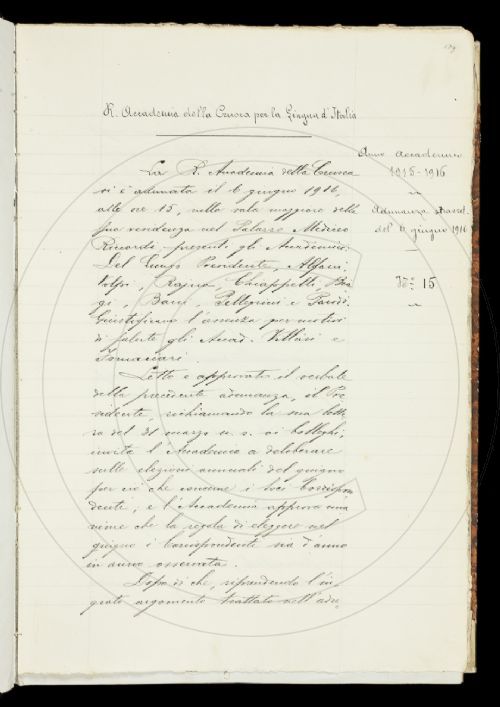 R. Accademia della Crusca per la Lingua d'Italia
Anno accademico
1915-1916
Adunanza
del 6 giugno 1916
15
La R. Accademia della Crusca
si è adunata il 6 giugno 1916,
alle ore 15, nella sala maggiore della
sua residenza nel Palazzo Mediceo
Riccardi presenti gli Accademici
Del Lungo Presidente, Alfani,
Volpi, Rajna, Chiappelli, Bia-
gi, Bacci, Pellegrini e Parodi.
Giustificano l'assenza per motivi
di salute gli Accad. Villari e
Tommasini.
Letto e approvato il verbale
della precedente adunanza, il Pre-
sidente, richiamando la sua lette-
ra del 31 marzo u. s. ai Colleghi,
invita l'Accademia a deliberare
sulle elezioni annuali del giugno
per ciò che concerne i Soci Corrispon
denti, e l'Accademia approva una
nime che la regola di eleggere nel
giugno i Corrispondenti sia d'anno
in anno osservata.
Dopo di che, riprendendo l'in-
grato argomento trattato nell'adu-